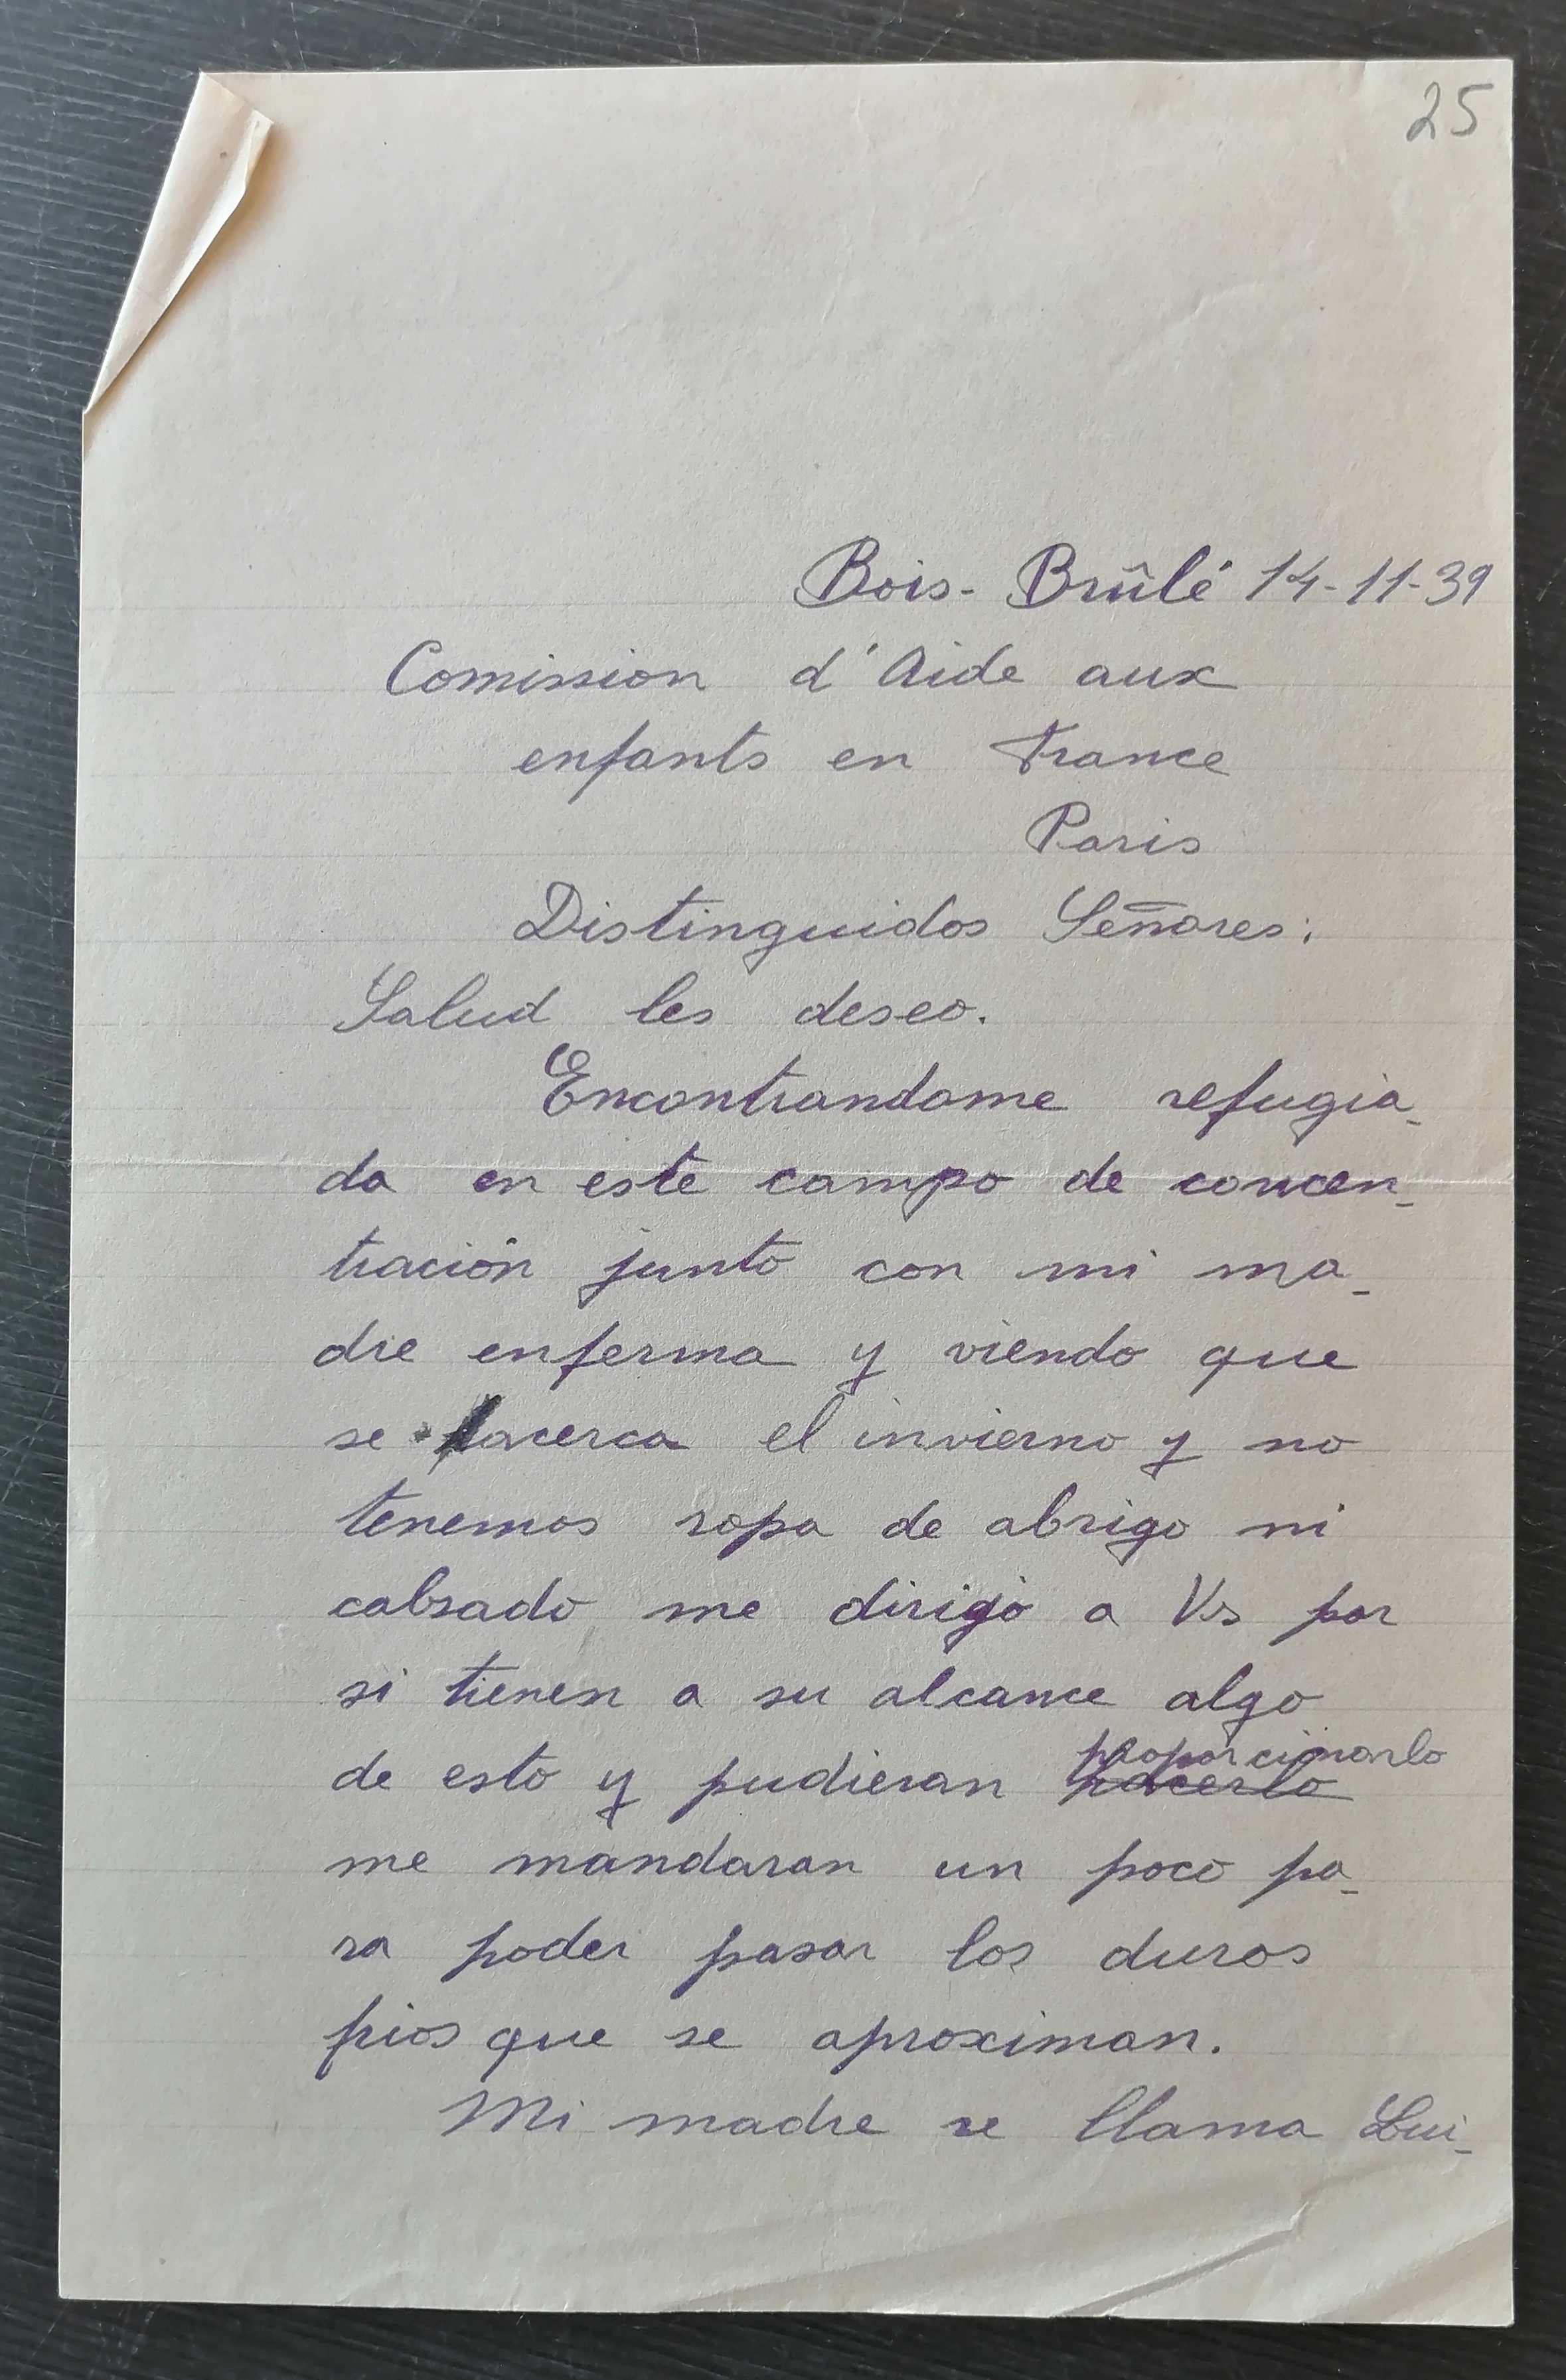 25
Bois-Brûlé 14-11-39
Comission d'Aide aux
enfants en France
Paris
Distinguidos Señores:
Salud les deseo.
Encontrandome refugia-
da en este campo de concen-
tración junto con mi ma-
dre enferma y viendo que
se acerca el invierno y no
tenemos ropa de abrigo ni
calsado me dirigo a Vs por
si tienen a su alcance algo
de esto y pudieran hacerlo proporcionarlo
me mandaran un poco pa-
ra poder pasar los duros
frios que se aproximan.
Mi madre se llama Lui-